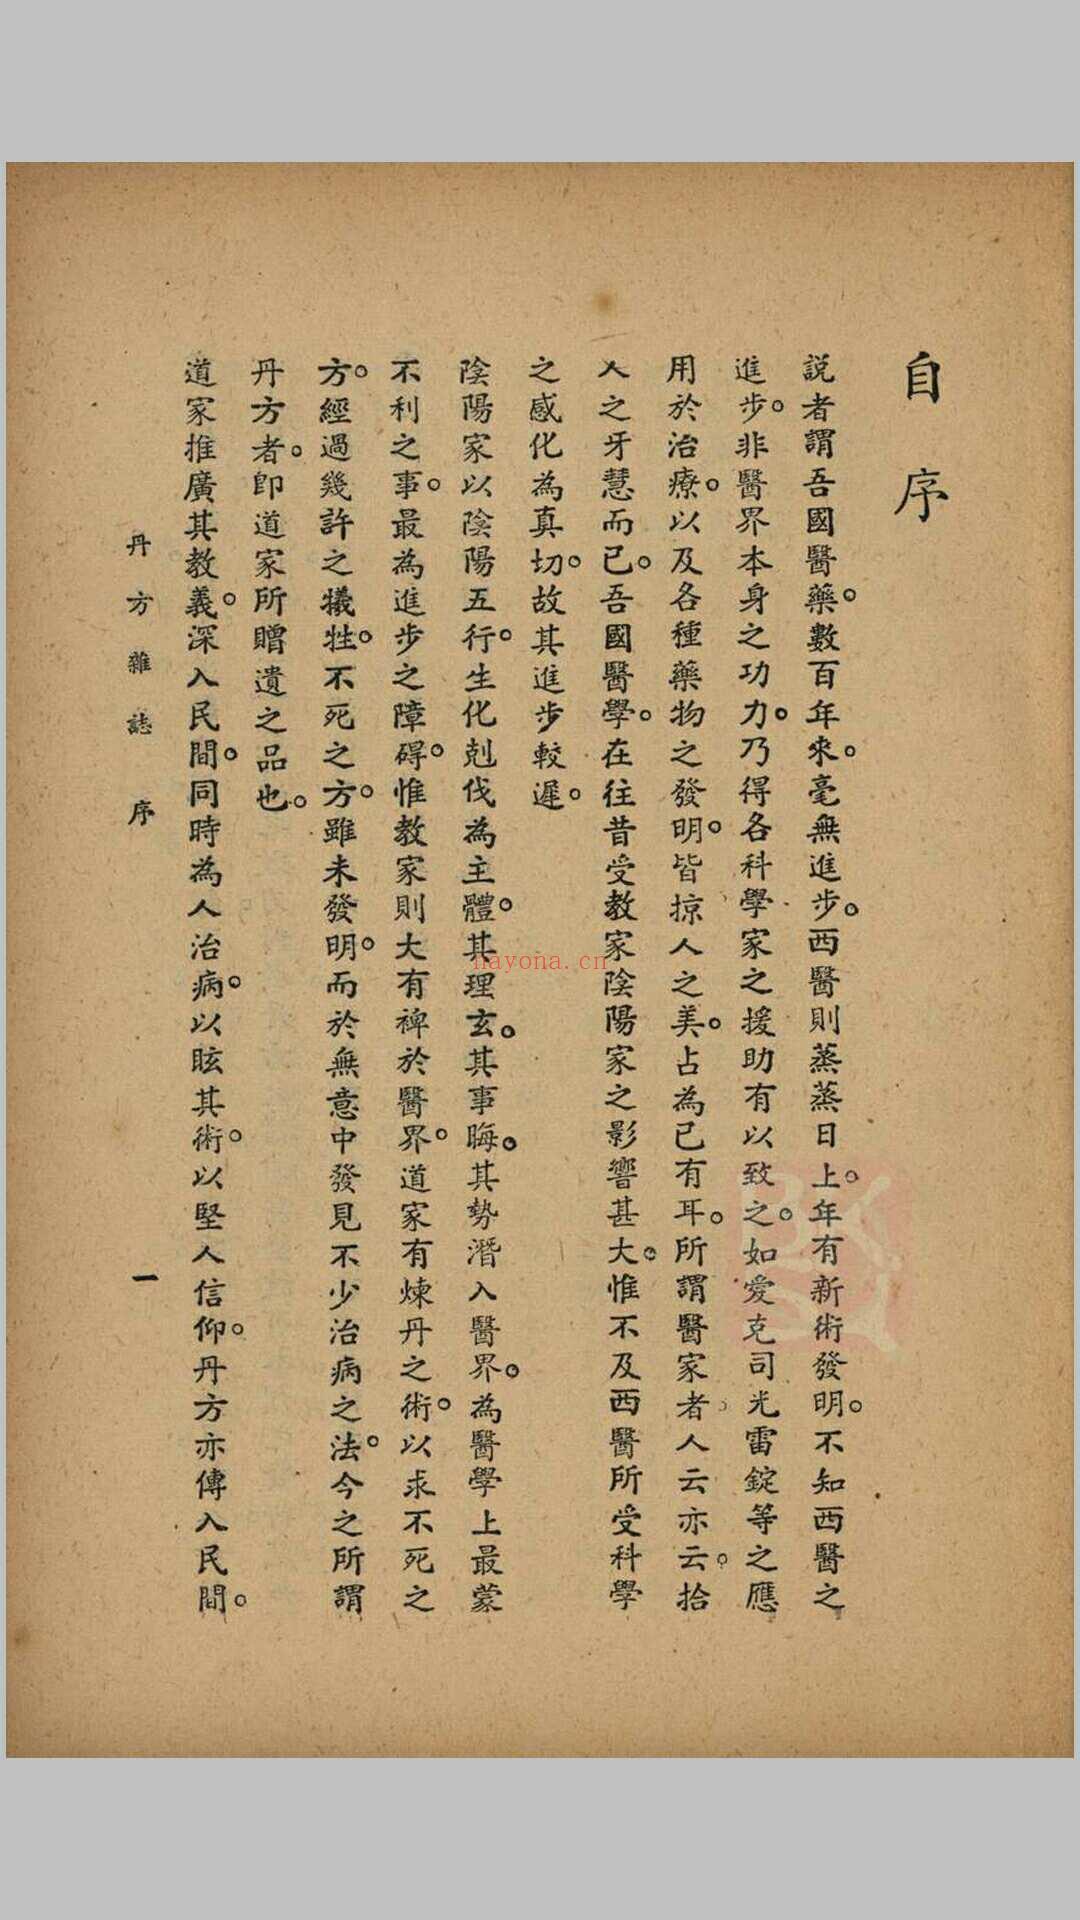 自序
説者謂吾國醫藥。數百年來。毫無進步。西醫則蒸蒸日上。年有新術發明。不知西醫之
進步。非醫界本身之功力。乃得各科學家之援助有以致之。如愛克司光雷錠等之應
用於治療。以及各種藥物之發明。皆掠人之美。占為己有耳。所謂醫家者人云亦云。拾
人之牙慧而已。吾國醫學。在往昔受教家陰陽家之影響甚大。惟不及西醫所受科學
之感化為真切。故其進步較遲。
陰陽家以陰陽五行。生化剋伐為主體。其理玄。其事晦。其勢潛入醫界。為醫學上最蒙
不利之事。最為進步之障碍。惟教家則大有裨於醫界。道家有煉丹之術。以求不死之
方。經過幾許之犧牲。不死之方。雖未發明。而於無意中發見不少治病之法。今之所謂
丹方者。即道家所贈遺之品也。
道家推廣其教義。深入民間。同時為人治病。以眩其術。以堅人信仰。丹方亦傳入民間。
丹方雜誌 序 一
nayona.cn